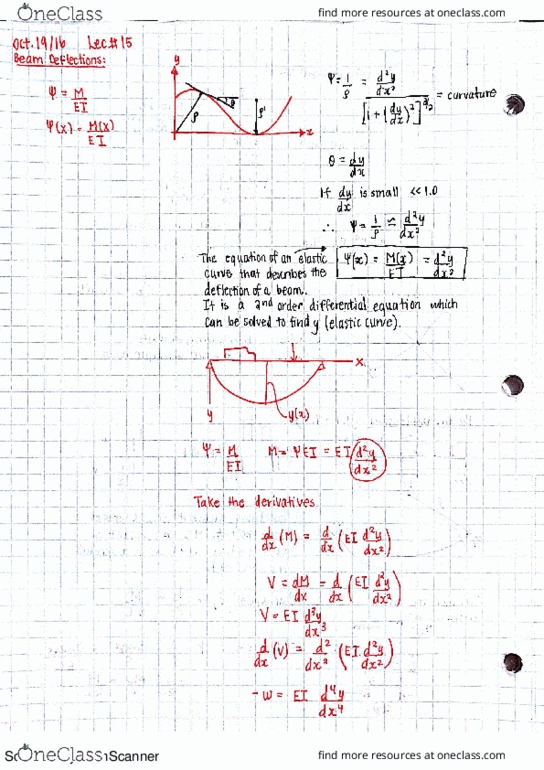 OneClass
find more resources at oneclass.com
Oct. 19/16 Lec.#15
Beam Deflections:
Ψ = M/EI
Ψ(x) = M(x)/EI
y
θ
ρ
ρ'
x
Ψ = 1/ρ = (d²y/dx²) / [1 + (dy/dx)²]^(3/2) = curvature
θ = dy/dx
If dy/dx is small << 1.0
∴ Ψ = 1/ρ ≈ d²y/dx²
The equation of an elastic
curve that describes the
deflection of a beam.
Ψ(x) = M(x)/EI = d²y/dx²
It is a 2nd order differential equation which
can be solved to find y (elastic curve).
x
y
y(x)
Ψ = M/EI M = ΨEI = EI d²y/dx²
Take the derivatives
d/dx (M) = d/dx (EI d²y/dx²)
V = dM/dx = d/dx (EI d²y/dx²)
V = EI d³y/dx³
d/dx (V) = d²/dx² (EI d²y/dx²)
-w = EI d⁴y/dx⁴
OneClass
Scanner
find more resources at oneclass.com